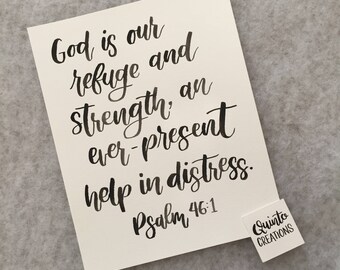 God is our
refuge and
strength, an
ever-present
help in distress.
Psalm 46:1
Quinto
CREATIONS